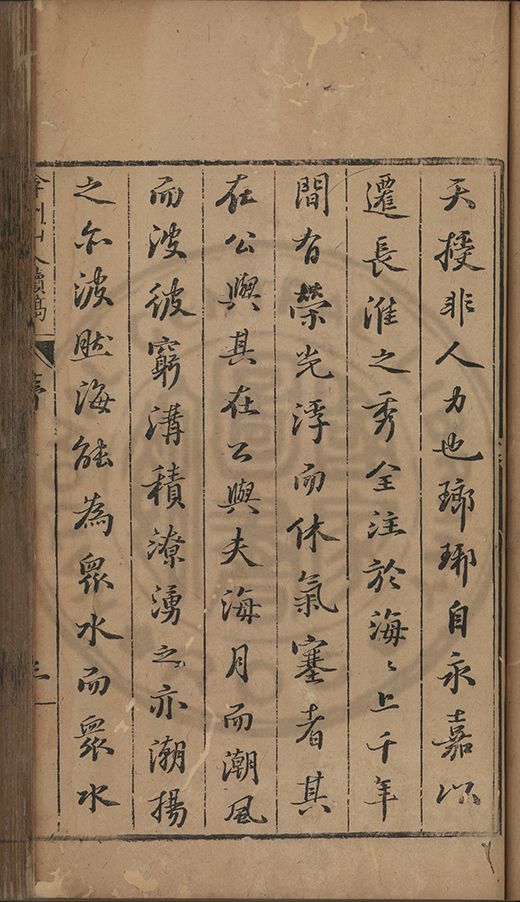 天授非人力也瑯琊自永嘉以
遷長淮之秀全注於海〻上千年
間有榮光浮而休氣塞者其
在公與其在公與夫海月而潮風
而波彼窮溝積潦湧之亦潮揚
之亦波然海能為衆水而衆水
弇州山人續稿
序